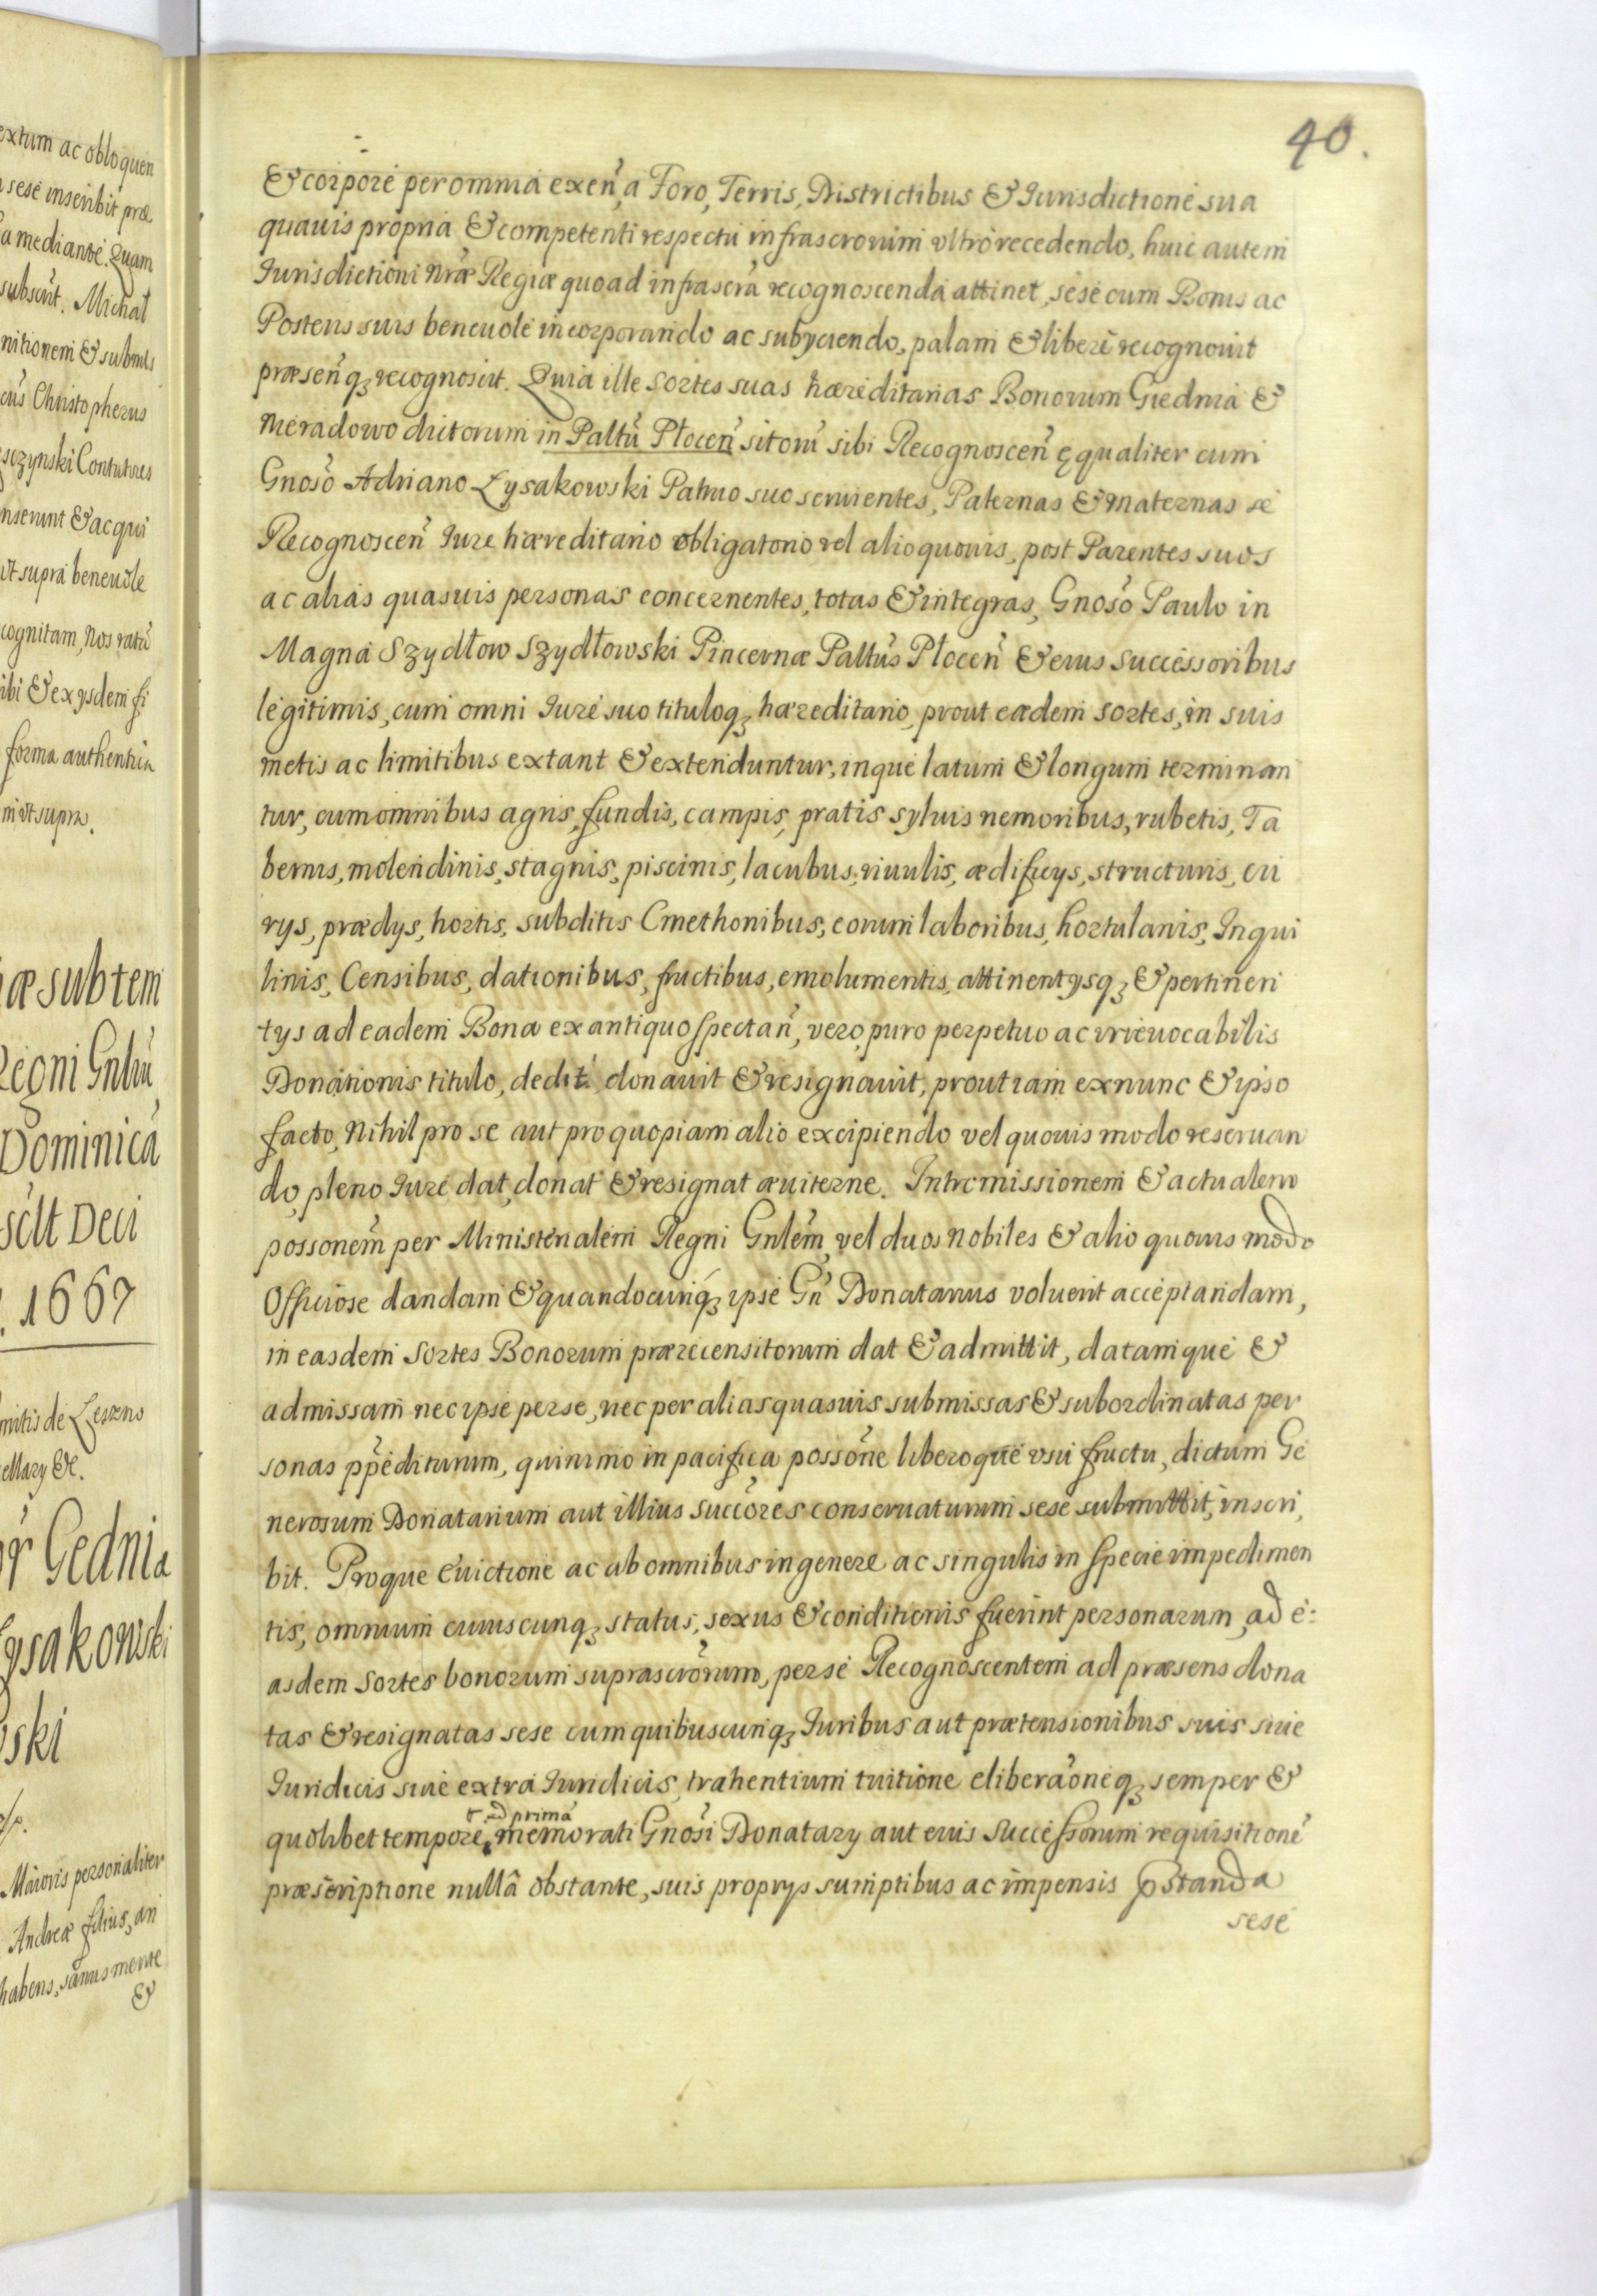 extum ac obloquen
sese inscribit præ
a mediante. Quam
subscrt. Michał
nitionem & submis
cus Christopherus
sczynski Contutores
nserunt & acqui
vt supra beneuole
cognitam, Nos ratū
ibi & ex ysdem fi
forma authentica
m vt supra.
æ subtem
Regni Gnlīū
Dominicā
sclt Deci
1667
mitis de Leszno
cellary &c.
Gednia
Łysakowski
wski
Maioris personaliter
Andreæ filius, an
habens, sanus mente
&
40.
& corpore per omnia exeñ, a Foro, Terris, Districtibus & Iurisdictione sua
quauis propria & competenti respectu infrascrorum vltro recedendo, huic autem
Iurisdictioni nrae Regiæ quoad infrascra recognoscenda attinet, sese cum Bonis ac
Posteris suis beneuole incorporando ac subyciendo, palam & libere recognouit
præseñq; recognoscit. Quia ille sortes suas hæreditarias Bonorum Giednia &
Meradowo dictorum in Paltū Płoceñ sitorū sibi Recognosceñ ęqualiter cum
Gnoso Adriano Łysakowski Patruo suo seruientes, Paternas & maternas se
Recognosceñ Iure hæreditario obligatorio vel alio quouis, post Parentes suos
ac alias quasuis personas concernentes, totas & integras, Gnoso Paulo in
Magna Szydłow Szydłowski Pincernæ Paltūs Płoceñ & eius successoribus
legitimis, cum omni Iure suo tituloq; hæreditario, prout eædem sortes, in suis
metis ac limitibus extant & extenduntur, inque latum & longum terminan
tur, cum omnibus agris, fundis, campis, pratis syluis nemoribus, rubetis, Ta
bernis, molendinis, stagnis, piscinis, lacubus, riuulis, ædificys, structuris, cu
rys, prædys, hortis, subditis Cmethonibus, eorum laboribus, hortulanis, Inqui
linis, Censibus, dationibus, fructibus, emolumentis, attinentysq; & pertinen
tys ad eadem Bona ex antiquo spectañ, vero, puro perpetuo ac irreuocabilis
Donationis titulo, dedit, donauit & resignauit, prout iam ex nunc & ipso
facto, Nihil pro se aut pro quopiam alio excipiendo vel quouis modo reseruan
do, pleno Iure dat, donat & resignat æuiterne. Intromissionem & actualem
possonem per Ministerialem Regni Gnlem, vel duos Nobiles & alio quouis modo
Officiose dandam & quandocunq; ipse Gñ Donatarius voluerit acceptandam,
in easdem sortes Bonorum præricensitorum dat & admittit, datamque &
admissam nec ipse perse, nec per alias quasuis submissas & subordinatas per
sonas ppediturum, quinimo in pacifica possone liberoque vsu fructu, dictum Ge
nerosum Donatarium aut illius succores conseruaturum sese submittit, inscri,
bit. Proque Euictione ac ab omnibus in genere ac singulis in specie impedimen
tis, omnium cuiuscunq; status, sexus & conditionis fuerint personarum, ad e:
asdem sortes bonorum suprascrorum, perse Recognoscentem ad præsens dona
tas & resignatas sese cum quibuscunq; Iuribus aut prætensionibus suis siue
Iuridicis siue extra Iuridicis, trahentium tuitione eliberaoneq; semper &
quolibet tempore, & ad primā memorati Gnosi Donatary aut euis Successorum requisitionē
præscriptione nullâ obstante, suis proprys sumptibus ac impensis pstanda
sese